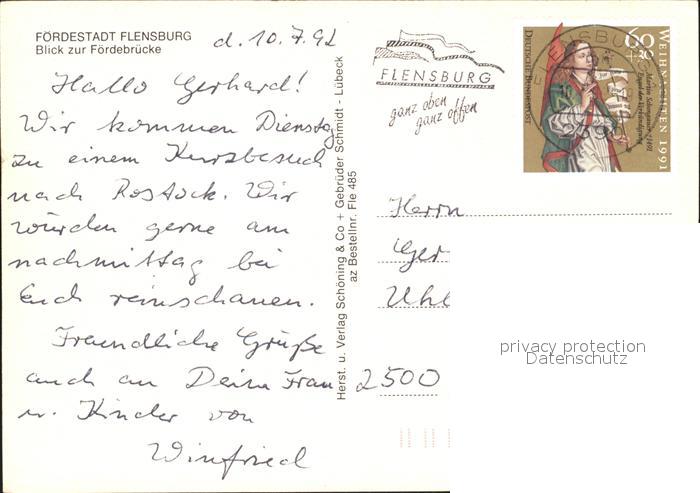 FÖRDESTADT FLENSBURG
Blick zur Fördebrücke
d. 10.7.92
Hallo Gerhard!
Wir kommen Dienstag
zu einem Kurzbesuch
nach Rostock. Wir
würden gerne am
nachmittag bei
Euch reinschauen.
Freundliche Grüße
auch an Deine Frau
u. Kinder von
Winfried
Herst. u. Verlag Schöning & Co + Gebrüder Schmidt - Lübeck
az Bestellnr. Fle 485
FLENSBURG
ganz oben
ganz offen
FLENSBURG
DEUTSCHE BUNDESPOST
60
+30
WEIHNACHTEN 1991
Martin Schongauer † 1491
Engel der Verkündigung
Herrn
Ger
Uhl
2500
privacy protection
Datenschutz